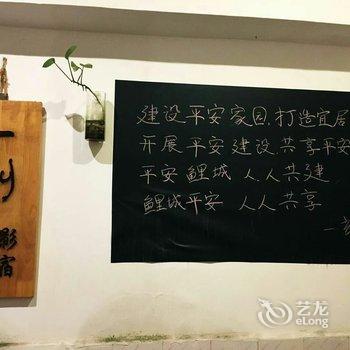 建设平安家园,打造宜居
开展平安建设,共享平安
平安鲤城 人人共建
鲤城平安 人人共享
一
影宿
艺龙
eLong.com